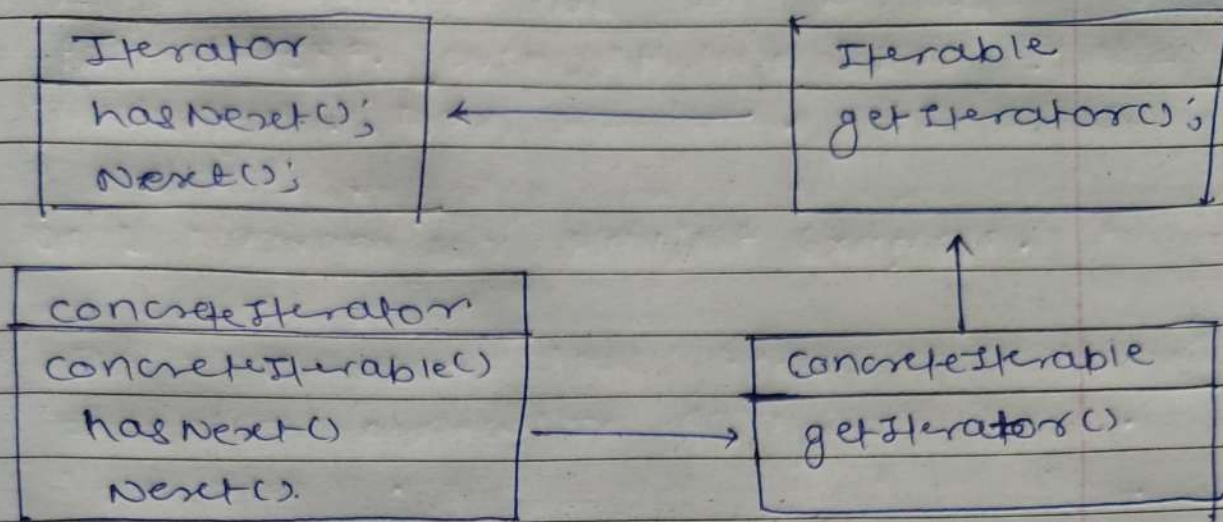 Iterator
hasNext();
Next();
Iterable
getIterator();
concreteIterator
concreteIterable()
hasNext()
Next().
concreteIterable
getIterator().